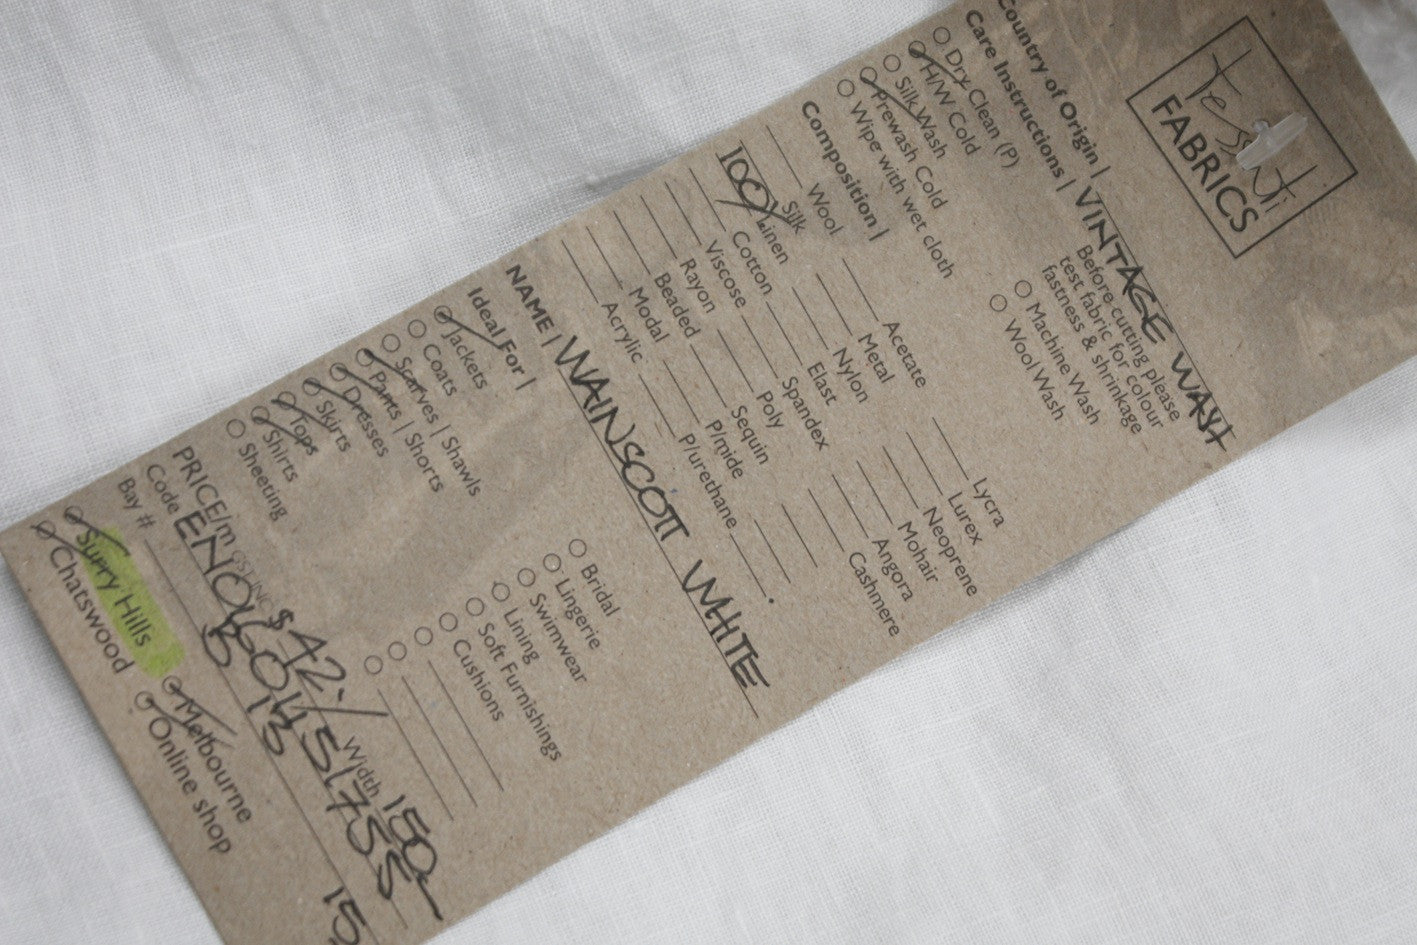 Tessuti
FABRICS
Country of Origin | VINTAGE WASH
Care Instructions | Before cutting please
test fabric for colour
fastness & shrinkage
Dry Clean (P)
H/W Cold
Silk Wash
Prewash Cold
Wipe with wet cloth
Machine Wash
Wool Wash
Composition |
Wool
Silk
100% Linen
Cotton
Viscose
Rayon
Beaded
Modal
Acrylic
Acetate
Metal
Nylon
Elast
Spandex
Poly
Sequin
P/mide
P/urethane
Lycra
Lurex
Neoprene
Mohair
Angora
Cashmere
NAME | WAINSCOTT WHITE
Ideal For |
Jackets
Coats
Scarves | Shawls
Pants | Shorts
Dresses
Skirts
Tops
Shirts
Sheeting
Bridal
Lingerie
Swimwear
Lining
Soft Furnishings
Cushions
PRICE/m GST INC $42./ Width 150
Code
Bay # 13 15
Surry Hills
Chatswood
Melbourne
Online shop